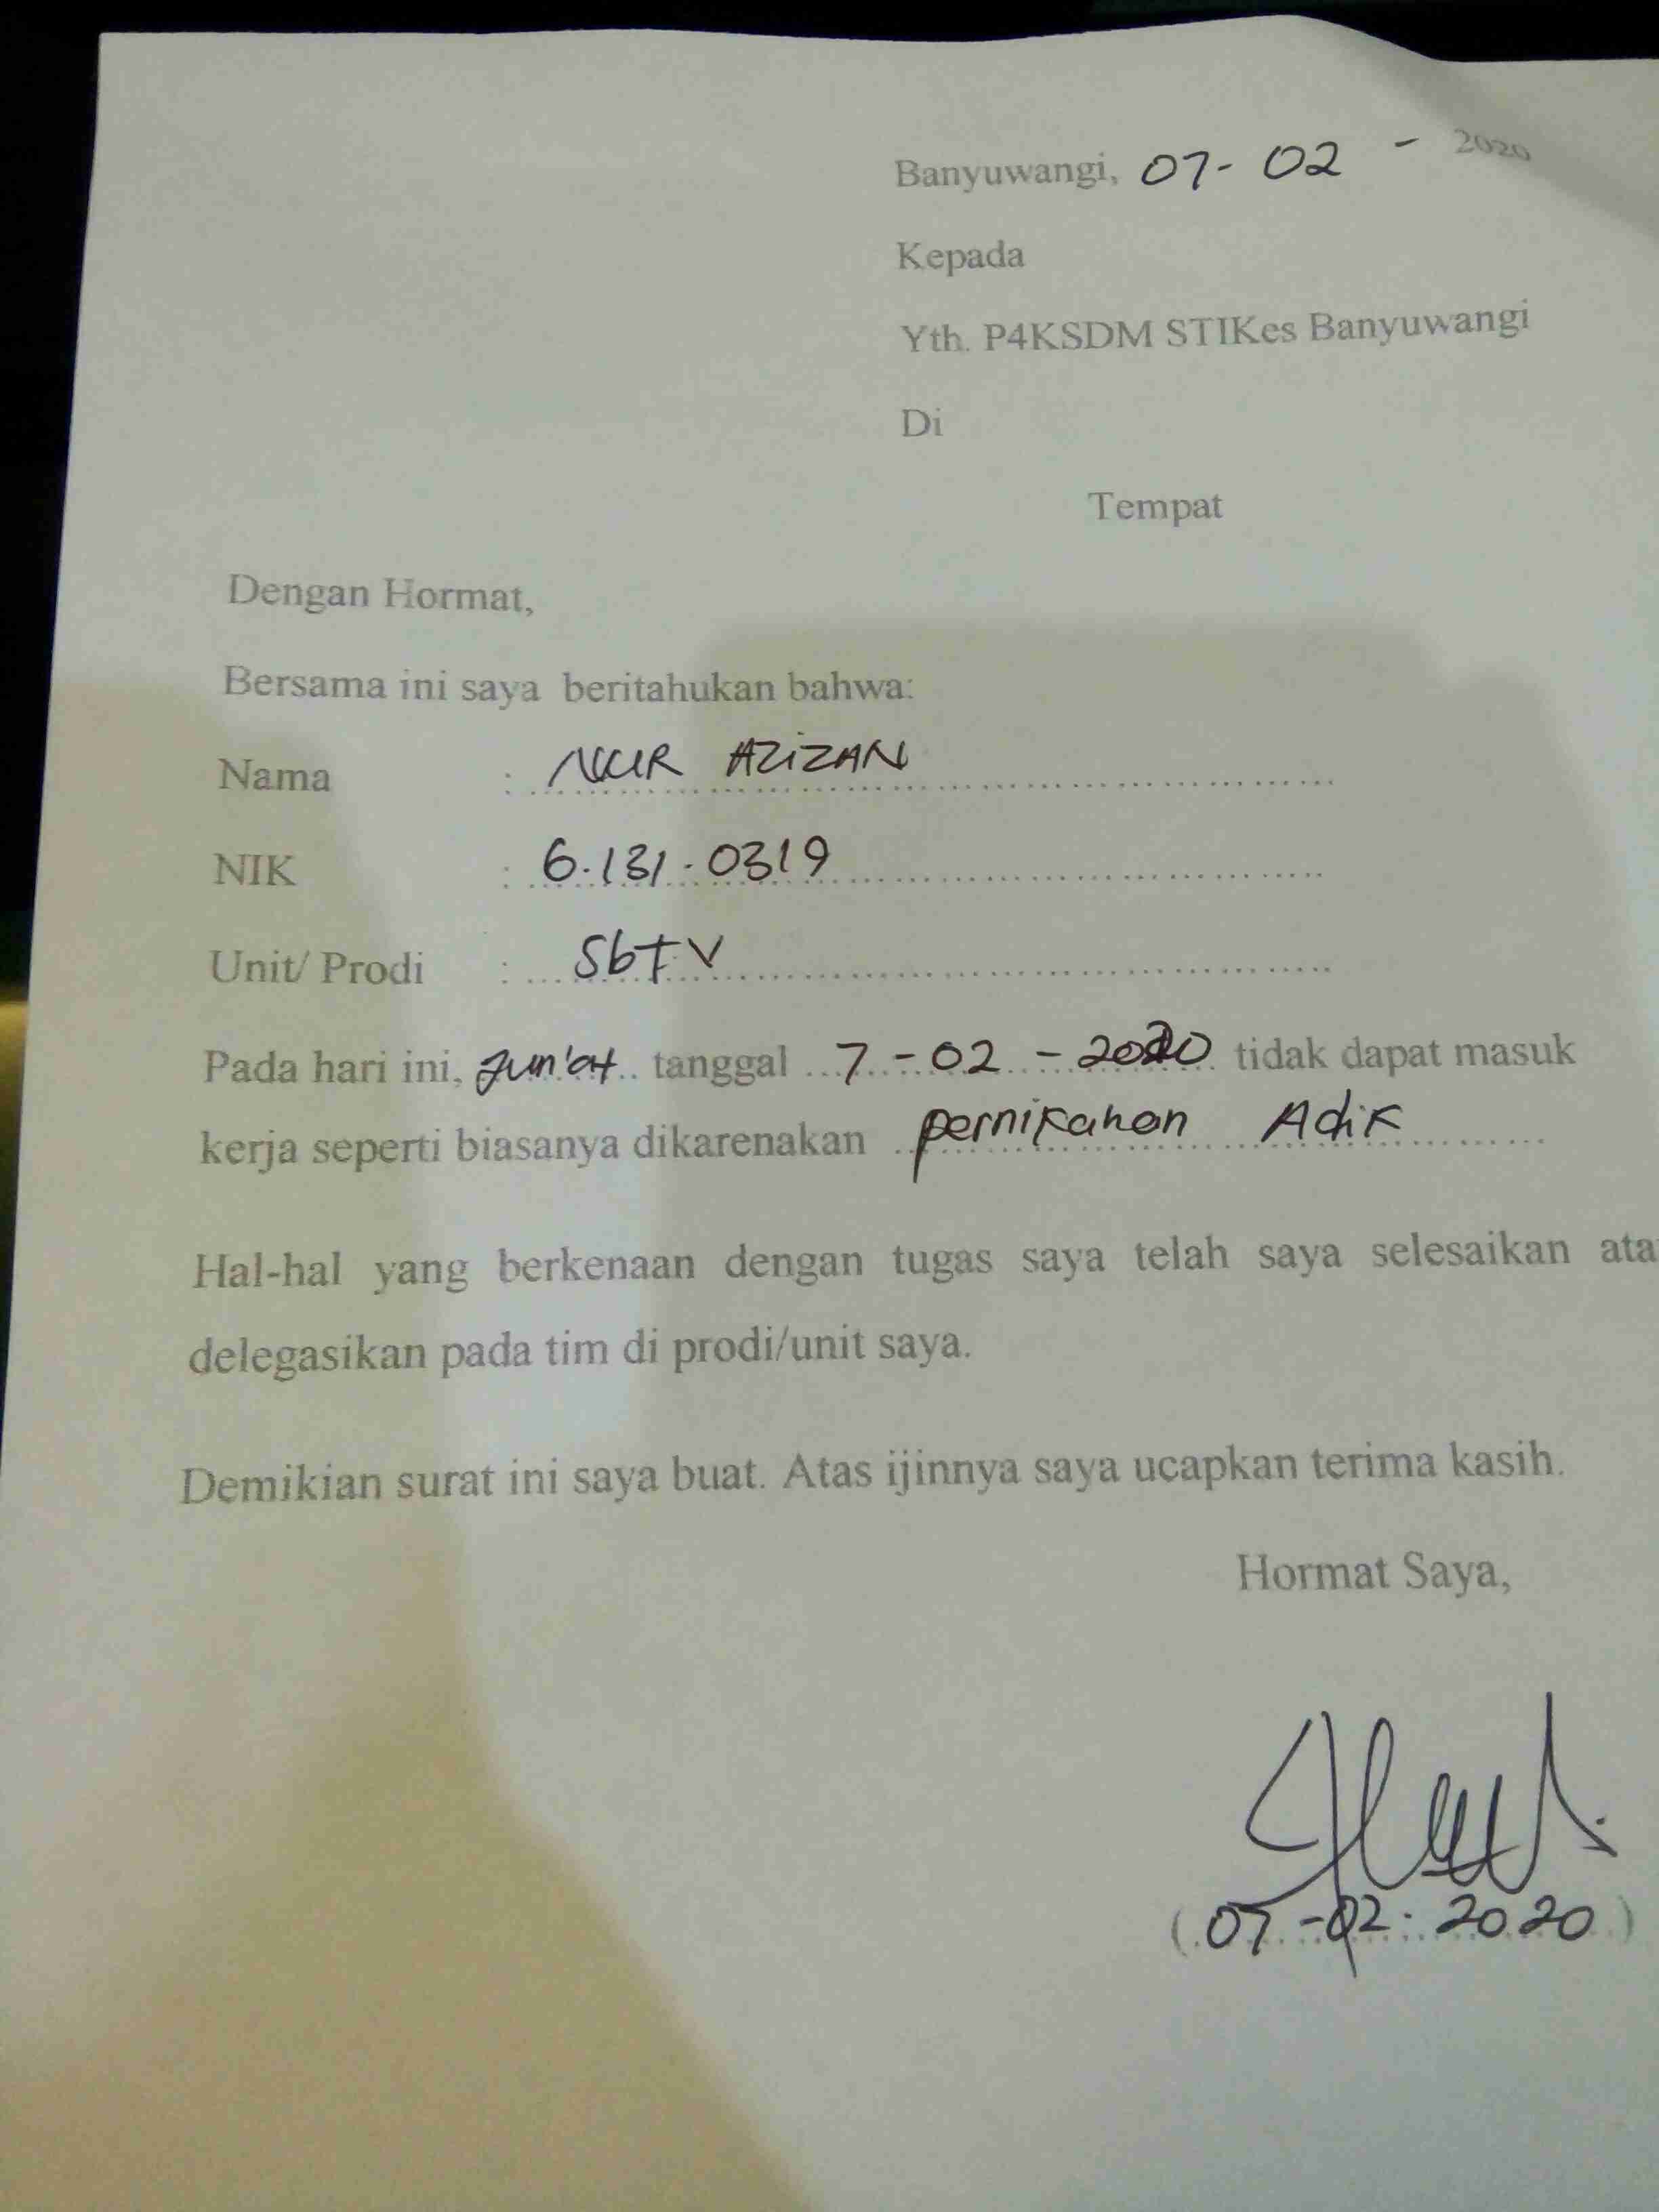 Banyuwangi, 07-02 - 2020
Kepada
Yth. P4KSDM STIKes Banyuwangi
Di
Tempat
Dengan Hormat,
Bersama ini saya beritahukan bahwa:
Nama : NUR AZIZAN
NIK : 6.131.0319
Unit/ Prodi :
Pada hari ini, Jum'at tanggal 7-02-2020 tidak dapat masuk
kerja seperti biasanya dikarenakan pernikahan Adik
Hal-hal yang berkenaan dengan tugas saya telah saya selesaikan ata
delegasikan pada tim di prodi/unit saya.
Demikian surat ini saya buat. Atas ijinnya saya ucapkan terima kasih.
Hormat Saya,
(07-02-2020)